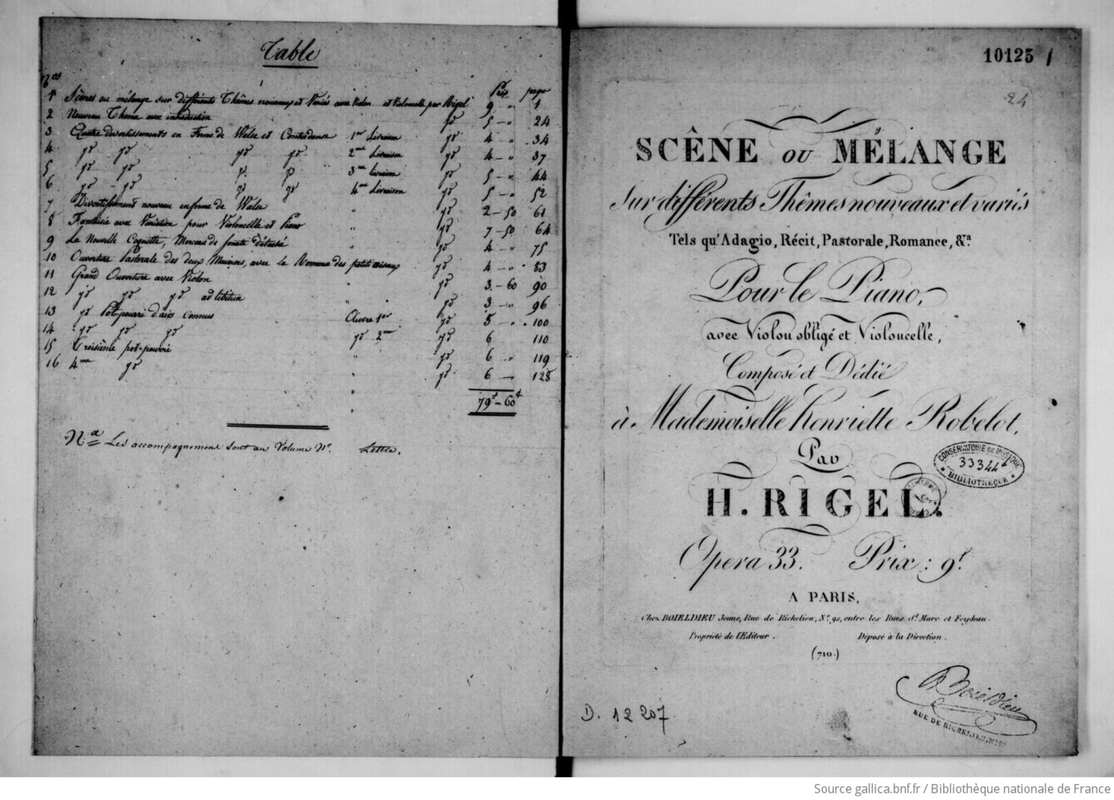 Table
Nos Prix page
1 Scênes ou mélange sur différents Thêmes nouveaux et Variés avec Violon et Violoncelle par Rigel 9 " 1
2 Nouveau Thême avec introduction do 5 " 24
3 Quatre divertissements en Forme de Walse et Contredanse 1ere Livraison do 4 " 34
4 do do do do 2me Livraison do 4 " 37
5 do do do do 3me Livraison do 5 " 44
6 do do do do 4me Livraison do 5 " 52
7 Divertissement nouveau en forme de Walse do 2 - 50 61
8 Fantaisie avec Variation pour Violoncelle et Piano do 7 - 50 64
9 La Nouvelle Coquette, Morceau de do 4 " 75
10 Ouverture Pastorale des deux avec la Romance des petits oiseaux do 4 " 83
11 Grand Ouverture avec Violon do 3 - 60 90
12 do do do ad libitum do 3 " 96
13 do Pot-pouri d'airs connus Œuvre 1er do 5 " 100
14 do do do do 2me do 6 110
15 Troisième pot-pourri do 6 " 119
16 4me do do 6 - 128
79f - 60c
Na Les accompagnemens sont au Volume No. Lettre.
10125 1
24
SCÊNE OU MÉLANGE
Sur différents Thêmes nouveaux et variés
Tels qu'Adagio, Récit, Pastorale, Romance, &a.
Pour le Piano,
avec Violon obligé et Violoncelle,
Composé et Dédié
à Mademoiselle Henriette Robelot,
Par
H. RIGEL.
CONSERVATOIRE DE MUSIQUE
33344
BIBLIOTHEQUE
Opera 33. Prix : 9f.
A PARIS,
Chez BOIELDIEU Jeune, Rue de Richelieu, No. 92, entre les Rues St. Marc et Feydeau.
Propriété de l'Editeur. Déposé à la Direction.
(710.)
Boieldieu
RUE DE RICHELIEU
D. 12207
Source gallica.bnf.fr / Bibliothèque nationale de France